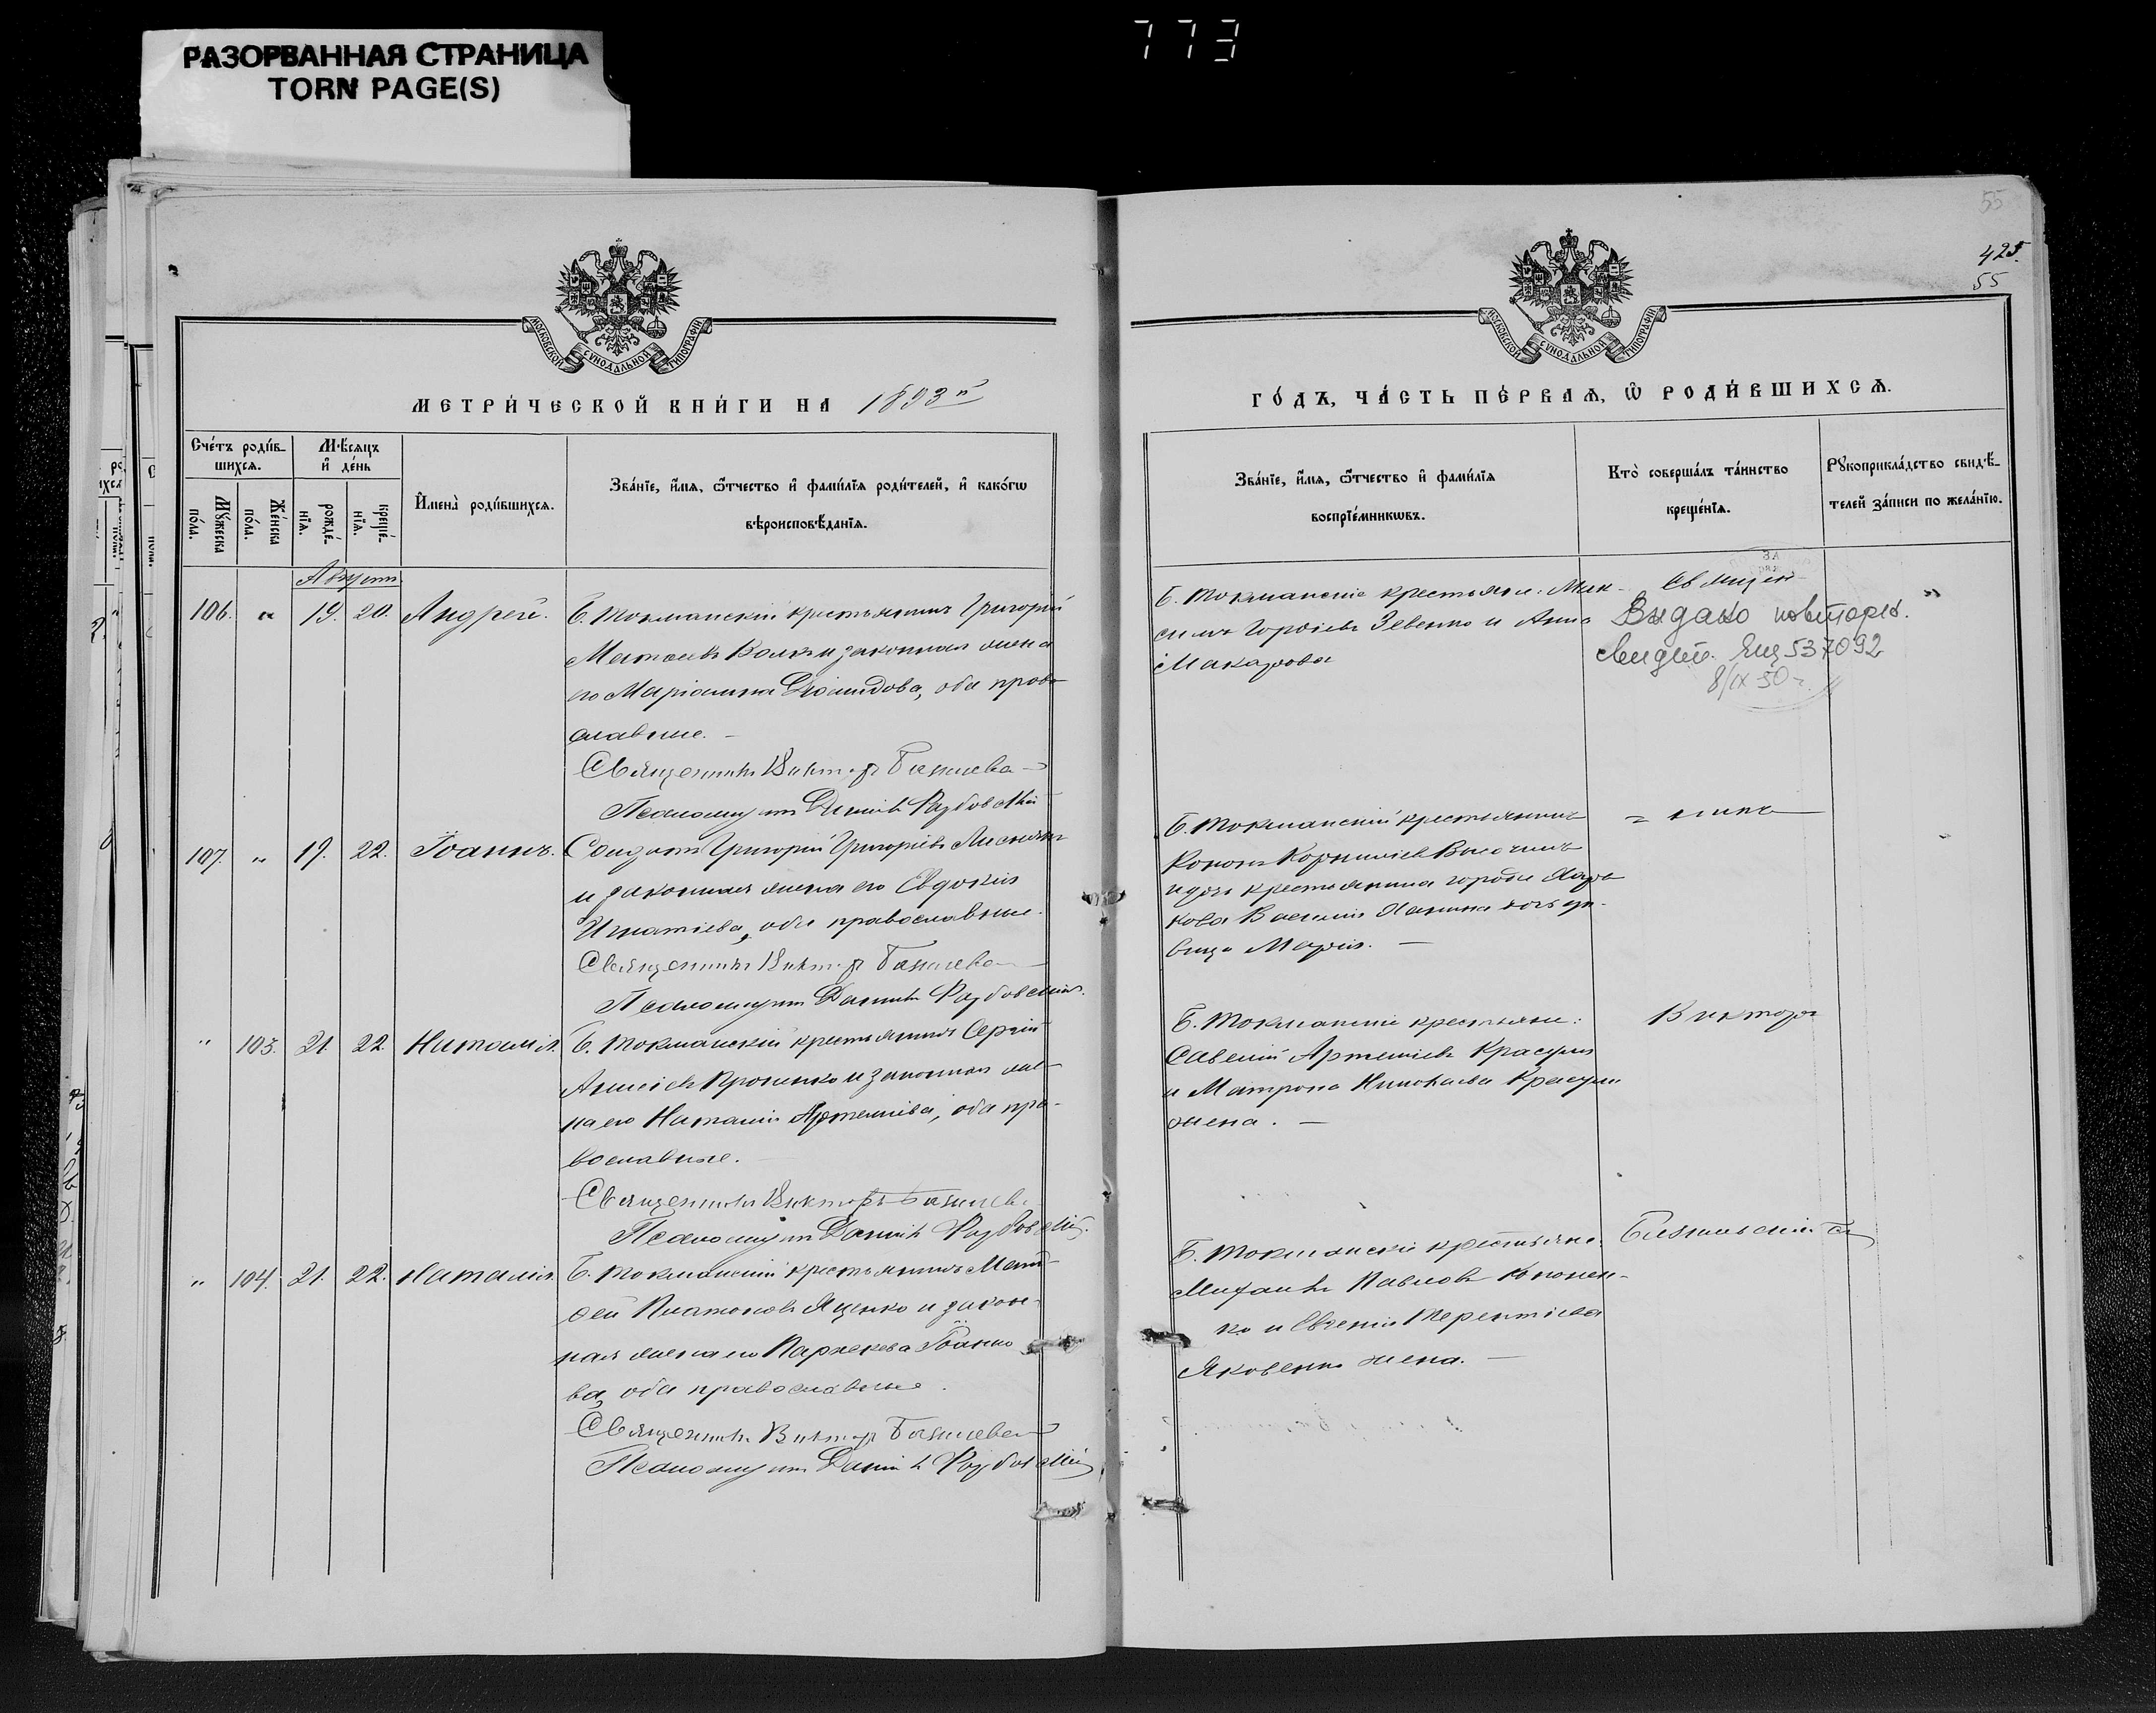 773
РАЗОРВАННАЯ СТРАНИЦА
TORN PAGE(S)
55
425
55
МОСКОВСКОЙ СѴНОДАЛЬНОЙ ТИПОГРАФІИ
МОСКОВСКОЙ СѴНОДАЛЬНОЙ ТИПОГРАФІИ
МЕТРИ́ЧЕСКОЙ КНИ́ГИ НА 1893й
ГО́ДЪ, ЧА́СТЬ ПЕ́РВАѦ, Ѿ РОДИ́ВШИХСѦ.
Сче́тъ роди́в-
шихсѧ.
Мꙋ́жеска по́ла.
Же́нска по́ла.
Мѣ́сѧцъ
и҆ де́нь
рожде́-
нїѧ.
креще́-
нїѧ.
И҆мена̀ роди́вшихсѧ.
Зва́нїе, и҆́мѧ, ѻ҆́тчество и҆ фами́лїѧ роди́телей, и҆ како́гѡ
вѣроисповѣ́данїѧ.
Зва́нїе, и҆́мѧ, ѻ҆́тчество и҆ фами́лїѧ
воспрїе́мникѡвъ.
Кто̀ соверша́лъ та́инство
креще́нїѧ.
Рꙋкоприкла́дство свидѣ́-
телей за́писи по жела́нїю.
Августъ
106. " 19. 20. Андрей. Б. Токмакскій крестьянинъ Григорій
его Маріанна Діомидова, оба право-
славные. –
Священникъ Викторъ
Псаломщикъ Даніилъ
Б. Токмакскіе крестьяне: Мак-
симъ Зевенко и Анна
Макарова
Священ-
Видано повторн.
свидет. 537092
8/IX 50 г.
107. " 19. 22. Іоаннъ. Солдатъ Григорій Григоріевъ
и законная жена его Евдокія
Игнатіева, оба православные.
Священникъ Викторъ
Псаломщикъ Даніилъ
Б. Токмакскій крестьянинъ
Кононъ Корниліевъ
и дочь крестьянина города Харь-
кова Василія
вица Марія. –
никъ
" 103. 21. 22. Наталія. Б. Токмакскій крестьянинъ Сергій
и законная же-
на его Наталія Артеміева, оба пра-
вославные.
Священникъ Викторъ
Псаломщикъ Даніилъ
Б. Токмакскіе крестьяне:
Савелій Артеміевъ Красуля
и Матрона Николаева Красули
жена. –
Викторъ
" 104. 21. 22. Наталія. Б. Токмакскій крестьянинъ
Платоновъ Яценко и закон-
ная жена его Параскева Іоанно-
ва, оба православные.
Священникъ Викторъ
Псаломщикъ Даніилъ
Б. Токмакскіе крестьяне:
Михаилъ Павловъ Кононен-
ко и Евгенія Терентіева
Яковенко жена. –